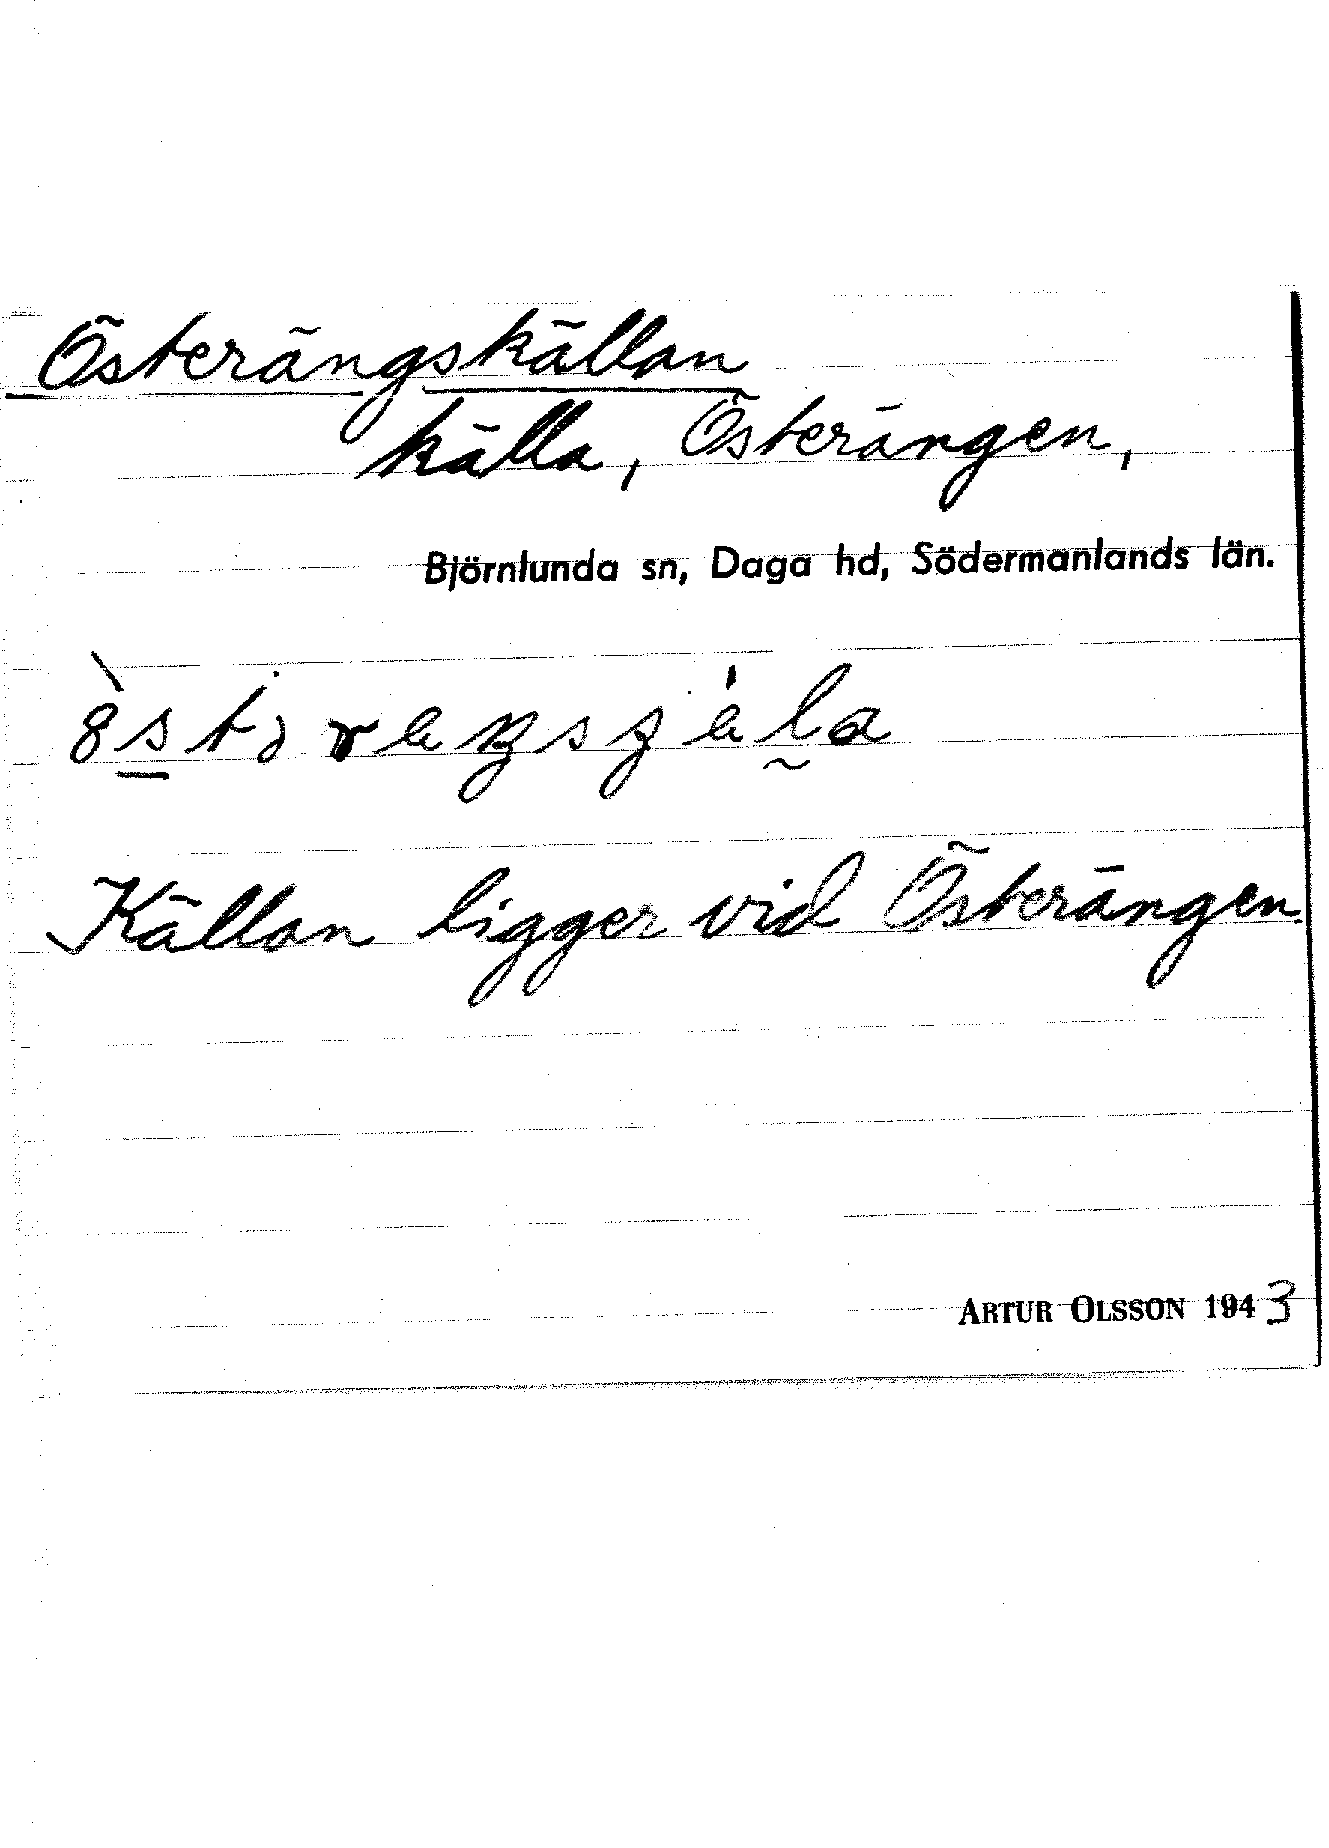 Österängskällan
källa, Österängen,
Björnlunda sn, Daga hd, Södermanlands län.
Källan ligger vid Österängen.
ARTUR OLSSON 1943